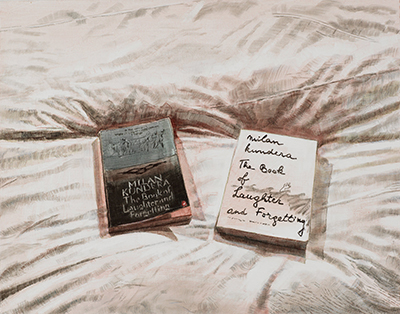 MILAN
KUNDERA
The Book of
Laughter and
Forgetting
milan
kundera
The Book
of
Laughter
and Forgetting